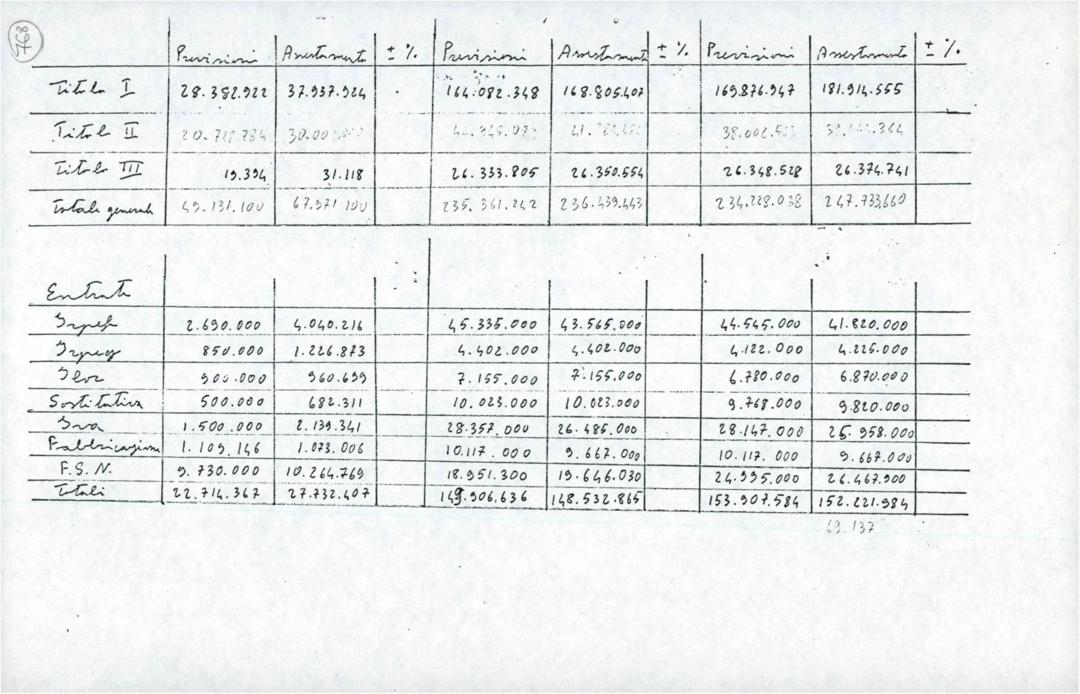 768
Previsioni Assestamento ± % Previsioni Assestamenti ± % Previsioni Assestamento ± %
Titolo I 28.382.922 37.937.924 164.082.348 168.805.407 169.876.947 181.914.555
Titolo II 20.728.784 30.002.000 38.002.513
Titolo III 19.394 31.118 26.333.805 26.350.554 26.348.528 26.374.741
Totale generale 49.131.100 67.971.100 235.361.242 236.439.443 234.228.038 247.733.660
Entrate
Irpef 2.690.000 4.040.216 45.335.000 43.565.000 44.545.000 41.820.000
Irpeg 850.000 1.226.873 4.402.000 4.402.000 4.122.000 4.225.000
Ilor 900.000 960.699 7.155.000 7.155.000 6.780.000 6.870.000
Sostitutiva 500.000 682.311 10.023.000 10.023.000 9.768.000 9.820.000
Iva 1.500.000 2.139.341 28.357.000 26.485.000 28.147.000 25.958.000
Fabbricazione 1.109.146 1.073.006 10.117.000 9.667.000 10.117.000 9.667.000
F.S.N. 9.730.000 10.264.769 18.951.300 19.646.030 24.995.000 26.467.900
Totali 22.714.367 27.732.407 149.906.636 148.532.865 153.907.584 152.221.984
69.137